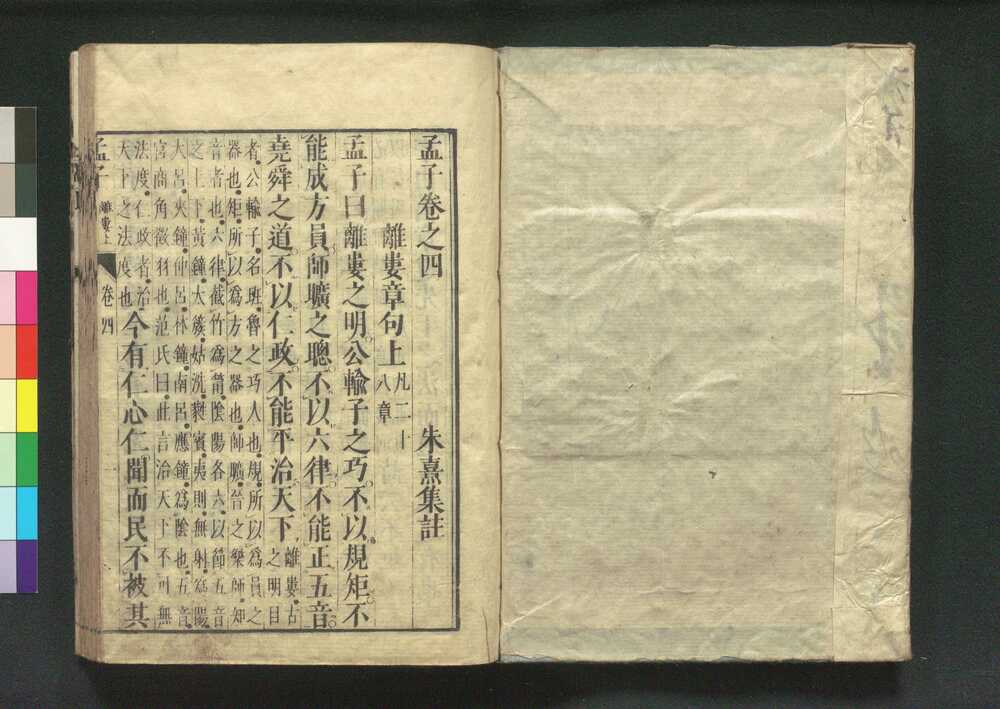 孟子卷之四 朱熹集註
離婁章句上 凡二十
八章
孟子曰離婁之明公輸子之巧不以規矩不
能成方員師曠之聰不以六律不能正五音
堯舜之道不以仁政不能平治天下 離婁古
之明目
者公輸子名班魯之巧人也規所以爲員之
器也矩所以爲方之器也師曠晉之樂師知
音者也六律截竹爲筩陰陽各六以節五音
之上下黃鐘大簇姑洗蕤賓夷則無射爲陽
大呂夾鐘仲呂林鐘南呂應鐘爲陰也五音
宮商角徵羽也范氏曰此言治天下不可無
法度仁政者治
天下之法度也 今有仁心仁聞而民不被其
孟子 離婁上 卷四